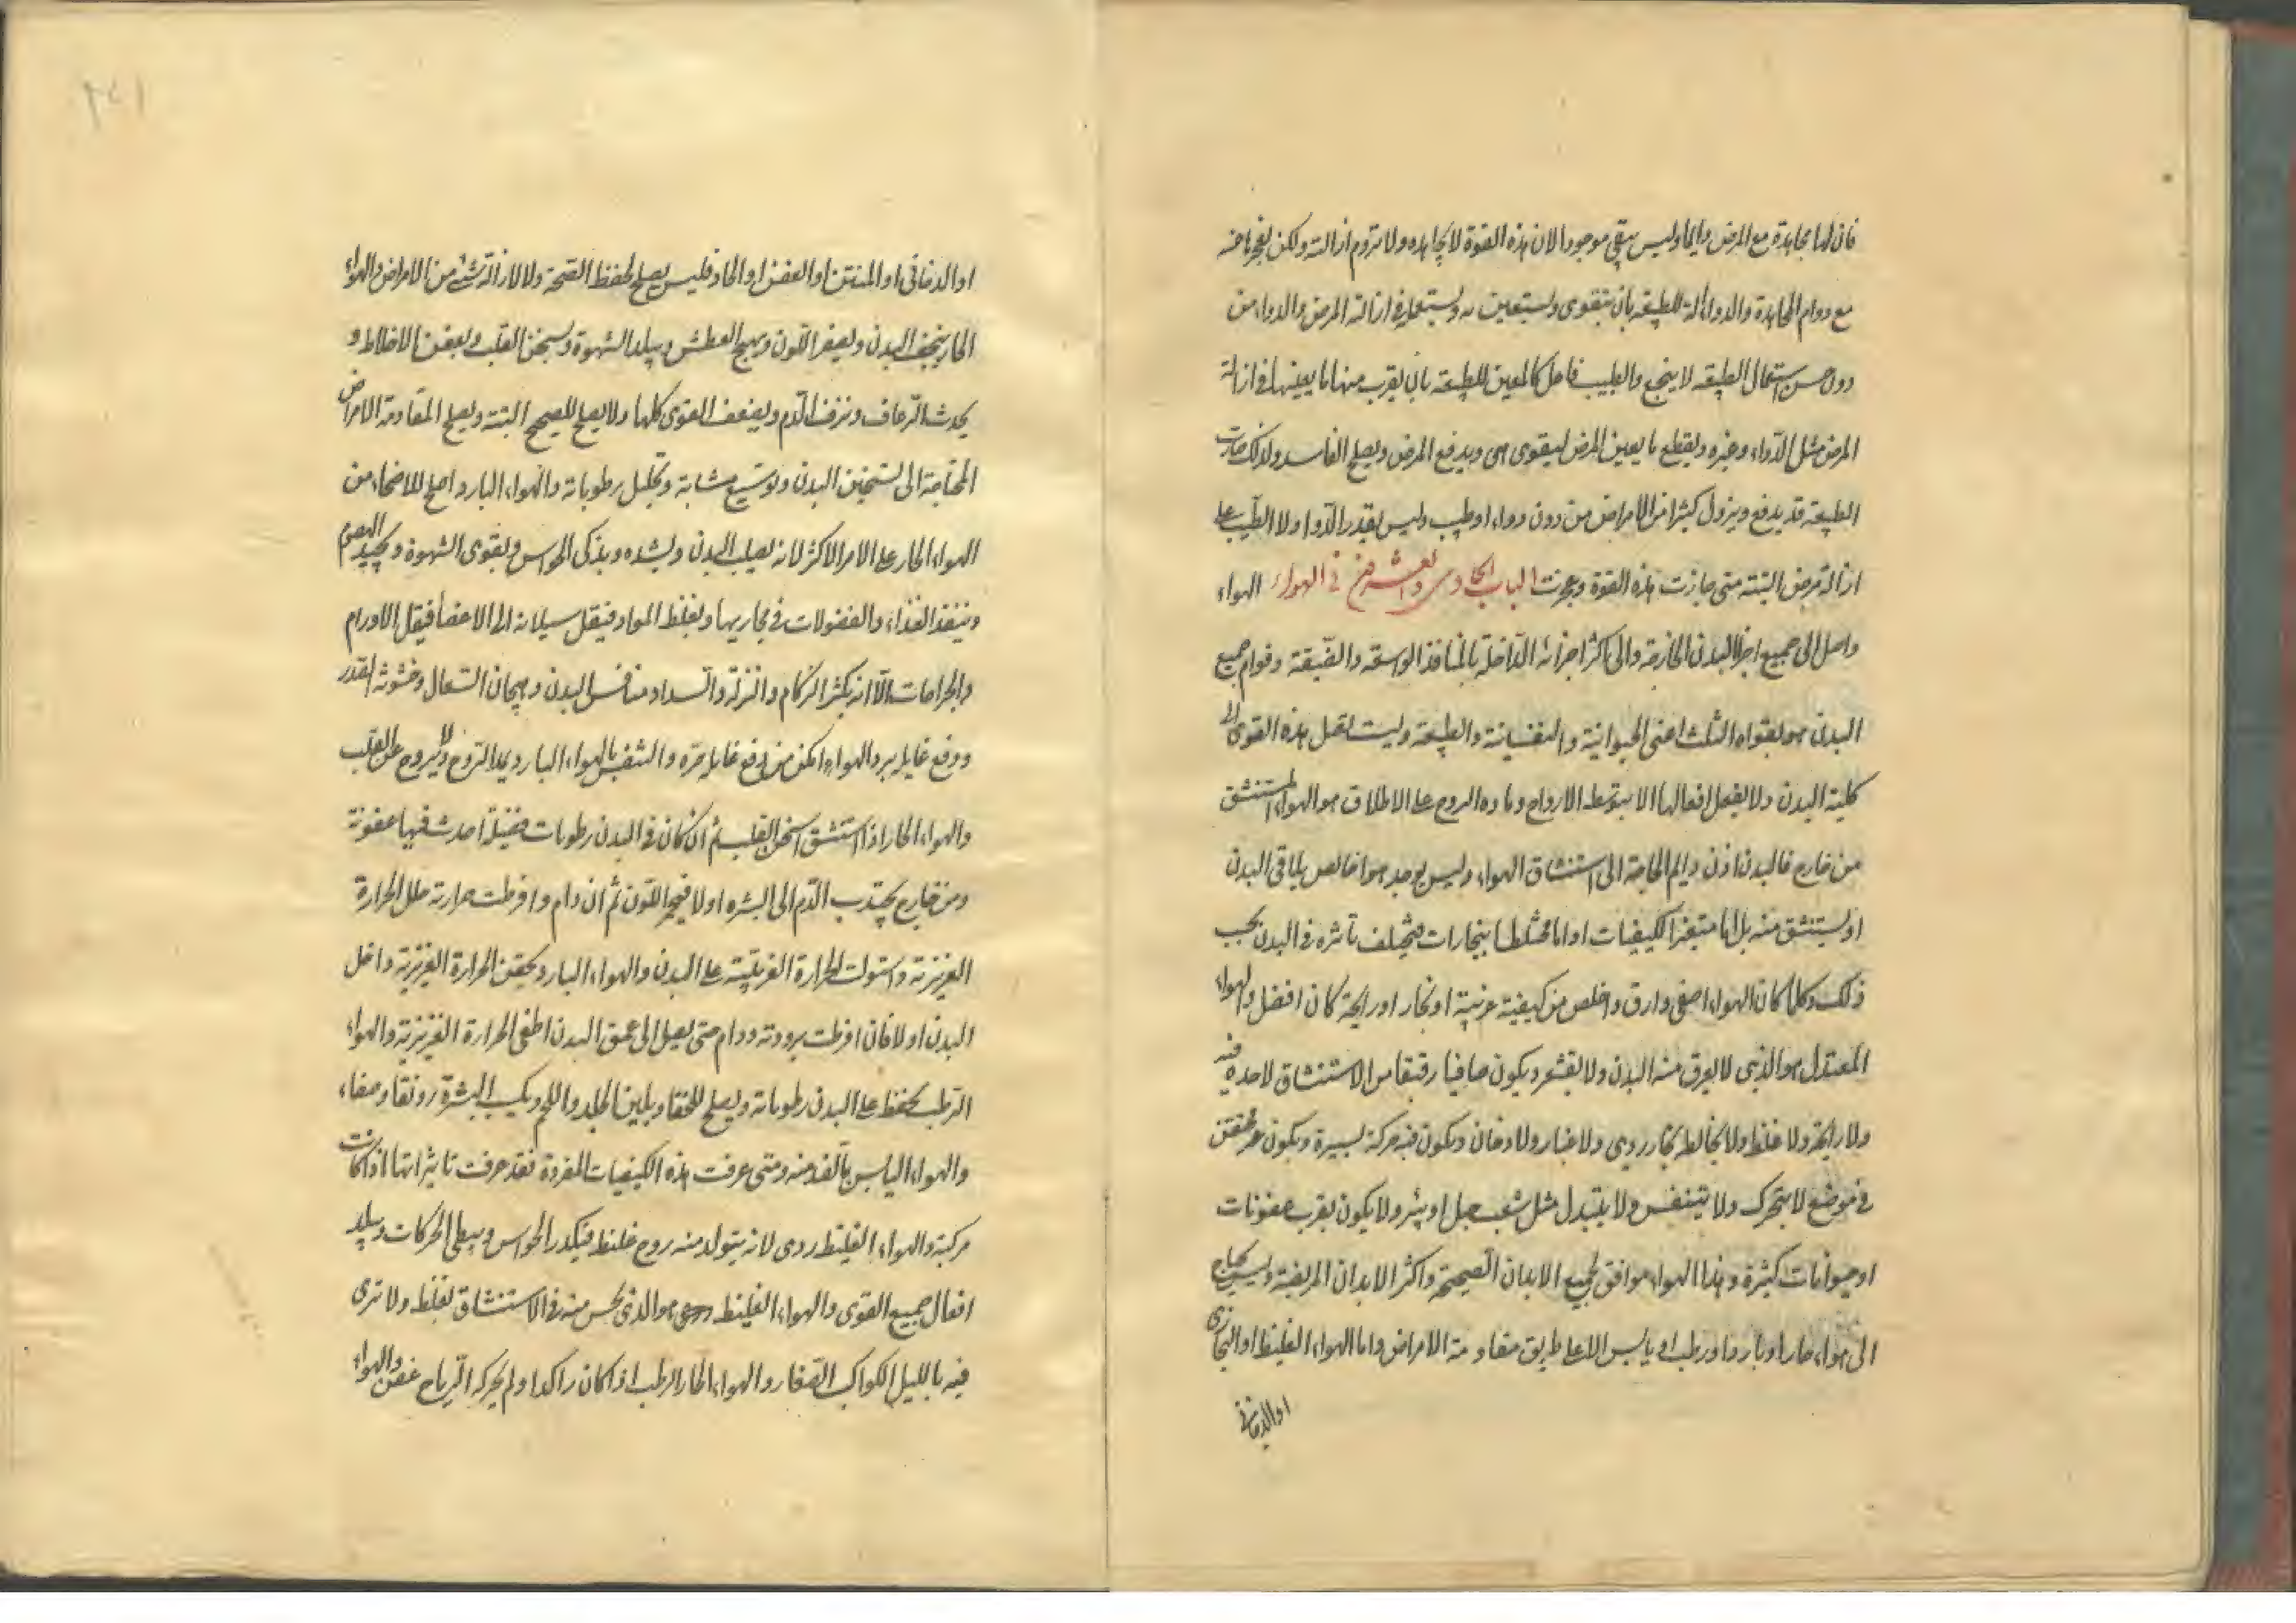 فان لها مجاهدة مع المرض دايما وليس يبقى موجودا الا ان هذه القوة لا تجاهده ولا تروم ازالته ولكن لعجزها عنه
مع دوام المجاهدة والدواء آلة للطبيعة بان تتقوى وتستعين به وتستعمله في ازالة المرض والدواء من
دون حسن استعمال الطبيعة لا ينجع والطبيب فاعل كالمعين للطبيعة بان يقرب منها ما يعينها في ازالة
المرض مثل الدواء وغيره ويقطع ما يعين المرض ليقوى هى ويدفع المرض ويصلح الفاسد ولذلك صارت
الطبيعة قد يدفع ويزول كثيرا من الامراض من دون دواء او طبيب وليس يقدر الدواء ولا الطبيب على
ازالة مرض البتة متى خارت هذه القوة وعجزت الباب الحادى والعشرون فى الهواء الهواء
واصل الى جميع اجزاء البدن الخارجة والى اكثر اجزائه الداخلة بالمنافذ الواسعة والضيقة وقوام جميع
البدن هو بقواه الثلث اعنى الحيوانية والنفسانية والطبيعة وليست تفعل هذه القوى لا
كلية البدن ولا يفعل افعالها الا بتوسط الارواح ومادة الروح على الاطلاق هو الهواء المستنشق
من خارج فالبدن اذن دايم الحاجة الى استنشاق الهواء وليس يوجد هوا خالص يلاقى البدن
او يستنشق منه بل اما متغير الكيفيات او اما مختلطا ببخارات فيختلف تاثيره فى البدن بحسب
ذلك وكلما كان الهواء اصفى وارق واخلص من كيفية غريبة او بخار او رايحة كان افضل والهواء
المعتدل هو الذى لا يعرق منه البدن ولا يقشعر ويكون صافيا رقيقا من الاستنشاق لا حدة فيه
ولا رايحة ولا غلظ ولا يخالطه بخار ردى ولا غبار ولا دخان ويكون فيه حركة يسيرة ويكون غير محتقن
فى موضع لا يتحرك ولا يتنفس ولا يتبدل مثل شعب جبل او بئر ولا يكون بقرب عفونات
او حيوانات كثيرة وهذا الهواء موافق لجميع الابدان الصحيحة واكثر الابدان المريضة وليس يحتاج
الى هواء حار او بارد او رطب او يابس الا على طريق مقاومة الامراض واما الهواء الغليظ او البخارى
او الدخانى
او الدخانى او المنتن او العفن او الحاد فليس يصلح لحفظ الصحة ولا لازالة شئ من الامراض والهواء
الحار ينحف البدن ويصفر اللون ويهيج العطش ويبلد الشهوة ويسخن القلب ويعفن الاخلاط و
يحدث الرعاف ونزف الدم ويضعف القوى كلها ولا يصلح للصحيح البتة ويصلح المقاومة الامراض
المحتاجة الى تسخين البدن وتوسيع مسامه وتحليل رطوباته والهواء البارد اصلح للاصحاء من
الهواء الحار على الامر الاكثر لانه يصلب البدن ويشده ويذكى الحواس ويقوى الشهوة ويجيد الهضم
وينفذ الغذاء والفضولات فى مجاريها ويغلظ المواد فيقل سيلانه الى الاعضا فيقل الاورام
والجراحات الا انه يكثر الزكام والنزلة وانسداد منافس البدن وهيجان السعال وخشونة الصدر
ودفع غايلة برد الهواء امكن من دفع غايلة حره والتنفس بالهواء البارد يمد الروح ويروح عن القلب
والهواء الحار اذا استنشق اسخن القلب ثم ان كان فى البدن رطوبات فضيلة احدث فيها عفونة
ومن خارج يجتذب الدم الى البشره اولا فيحمر اللون ثم ان دام وافرطت حرارته حلل الحرارة
الغريزية واستولت الحرارة الغريبة على البدن والهواء البارد يحقن الحرارة الغريزية داخل
البدن اولا فان افرطت برودته ودام حتى يصل الى عمق البدن اطفى الحرارة الغريزية والهواء
الرطب يحفظ على البدن رطوباته ويصلح للحفا ويلين الجلد واللحم ويكسب البشرة رونقا وصفاء
والهواء اليابس بالضد منه ومتى عرفت هذه الكيفيات المفردة فقد عرفت تاثيراتها اذا كانت
مركبة والهواء الغليظ ردى لانه يتولد منه روح غليظ فيكدر الحواس ويبطى الحركات ويبلد
افعال جميع القوى والهواء الغليظ هو الذى يحس منه فى الاستنشاق بغلظ ولا ترى
فيه بالليل الكواكب الصغار والهواء الحار الرطب اذا كان راكدا ولم يحركه الرياح عفن والهواء